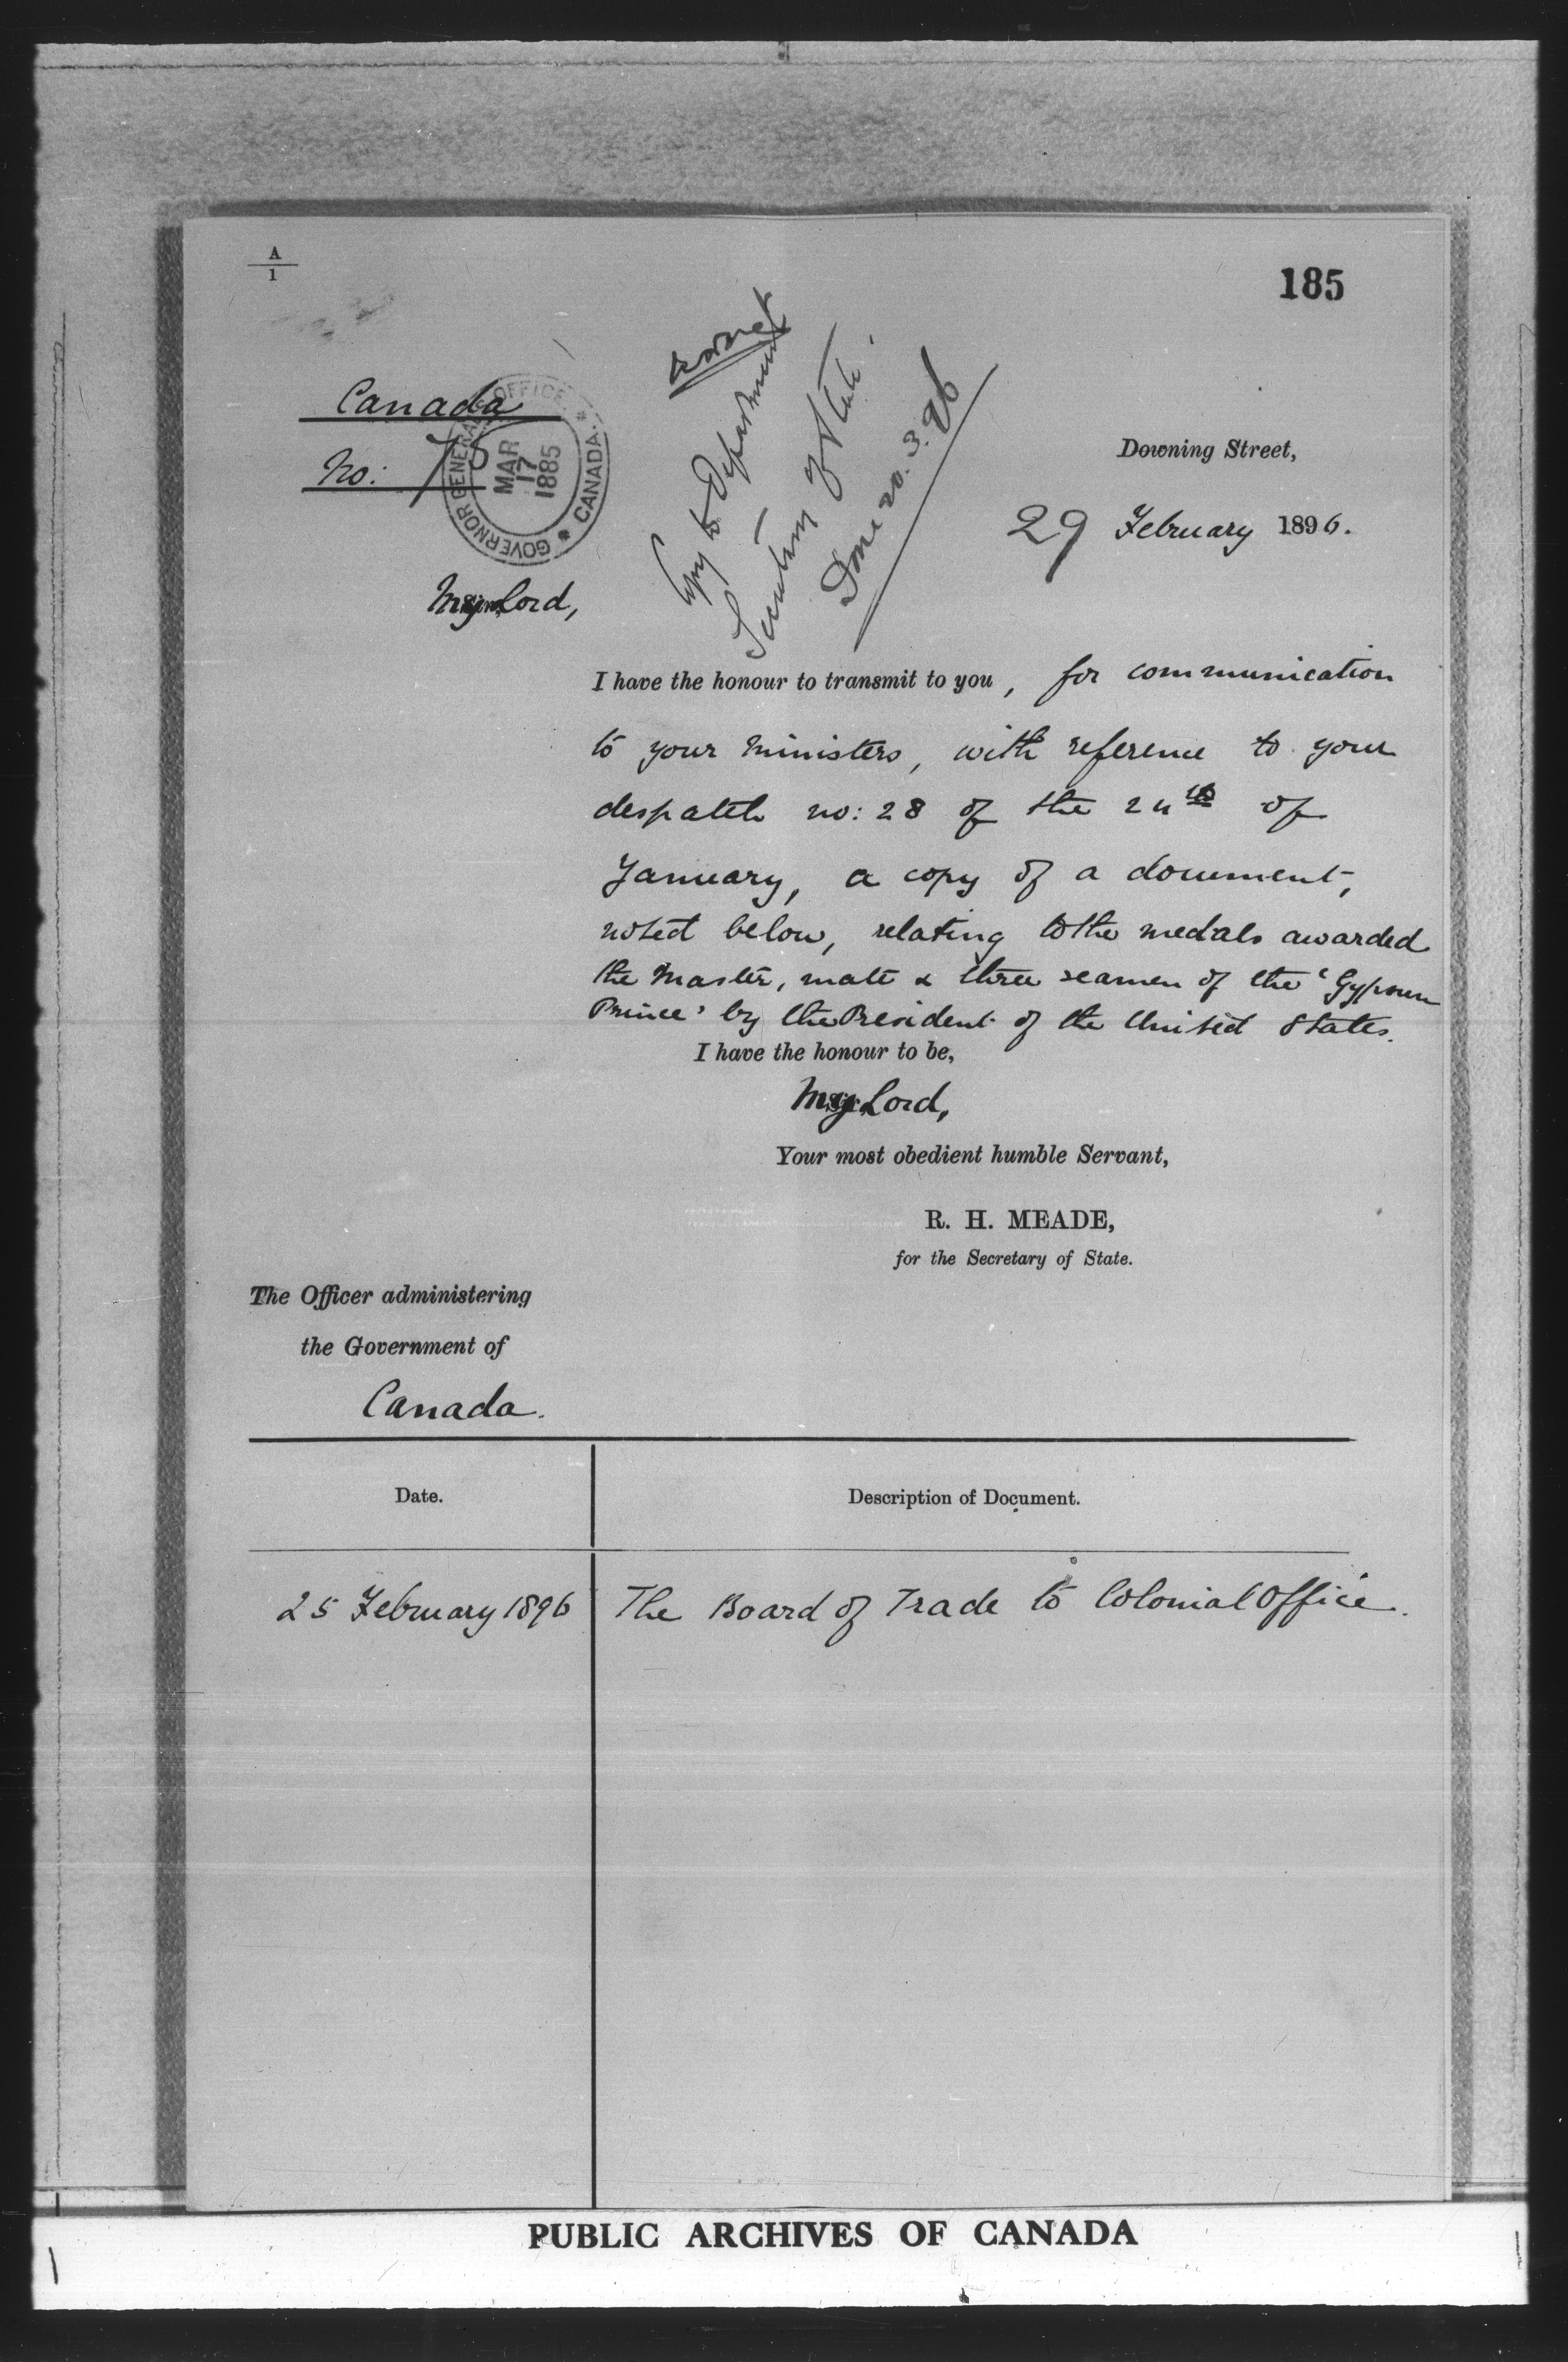 A
1
185
Canada
No: 75
GOVERNOR GENERAL'S OFFICE * CANADA. *
MAR
17
1885
Copy to Department
Secretary of State.
Done 20.3.96
Downing Street,
29 February 1896.
My Lord,
I have the honour to transmit to you, for communication
to your Ministers, with reference to your
despatch no: 28 of the 24th of
January, a copy of a document,
noted below, relating to the medals awarded
the Master, mate & three seamen of the 'Gypsum
Prince' by the President of the United States.
I have the honour to be,
My Lord,
Your most obedient humble Servant,
R. H. MEADE,
for the Secretary of State.
The Officer administering
the Government of
Canada.
Date.
Description of Document.
25 February 1896
The Board of Trade to Colonial Office.
PUBLIC ARCHIVES OF CANADA